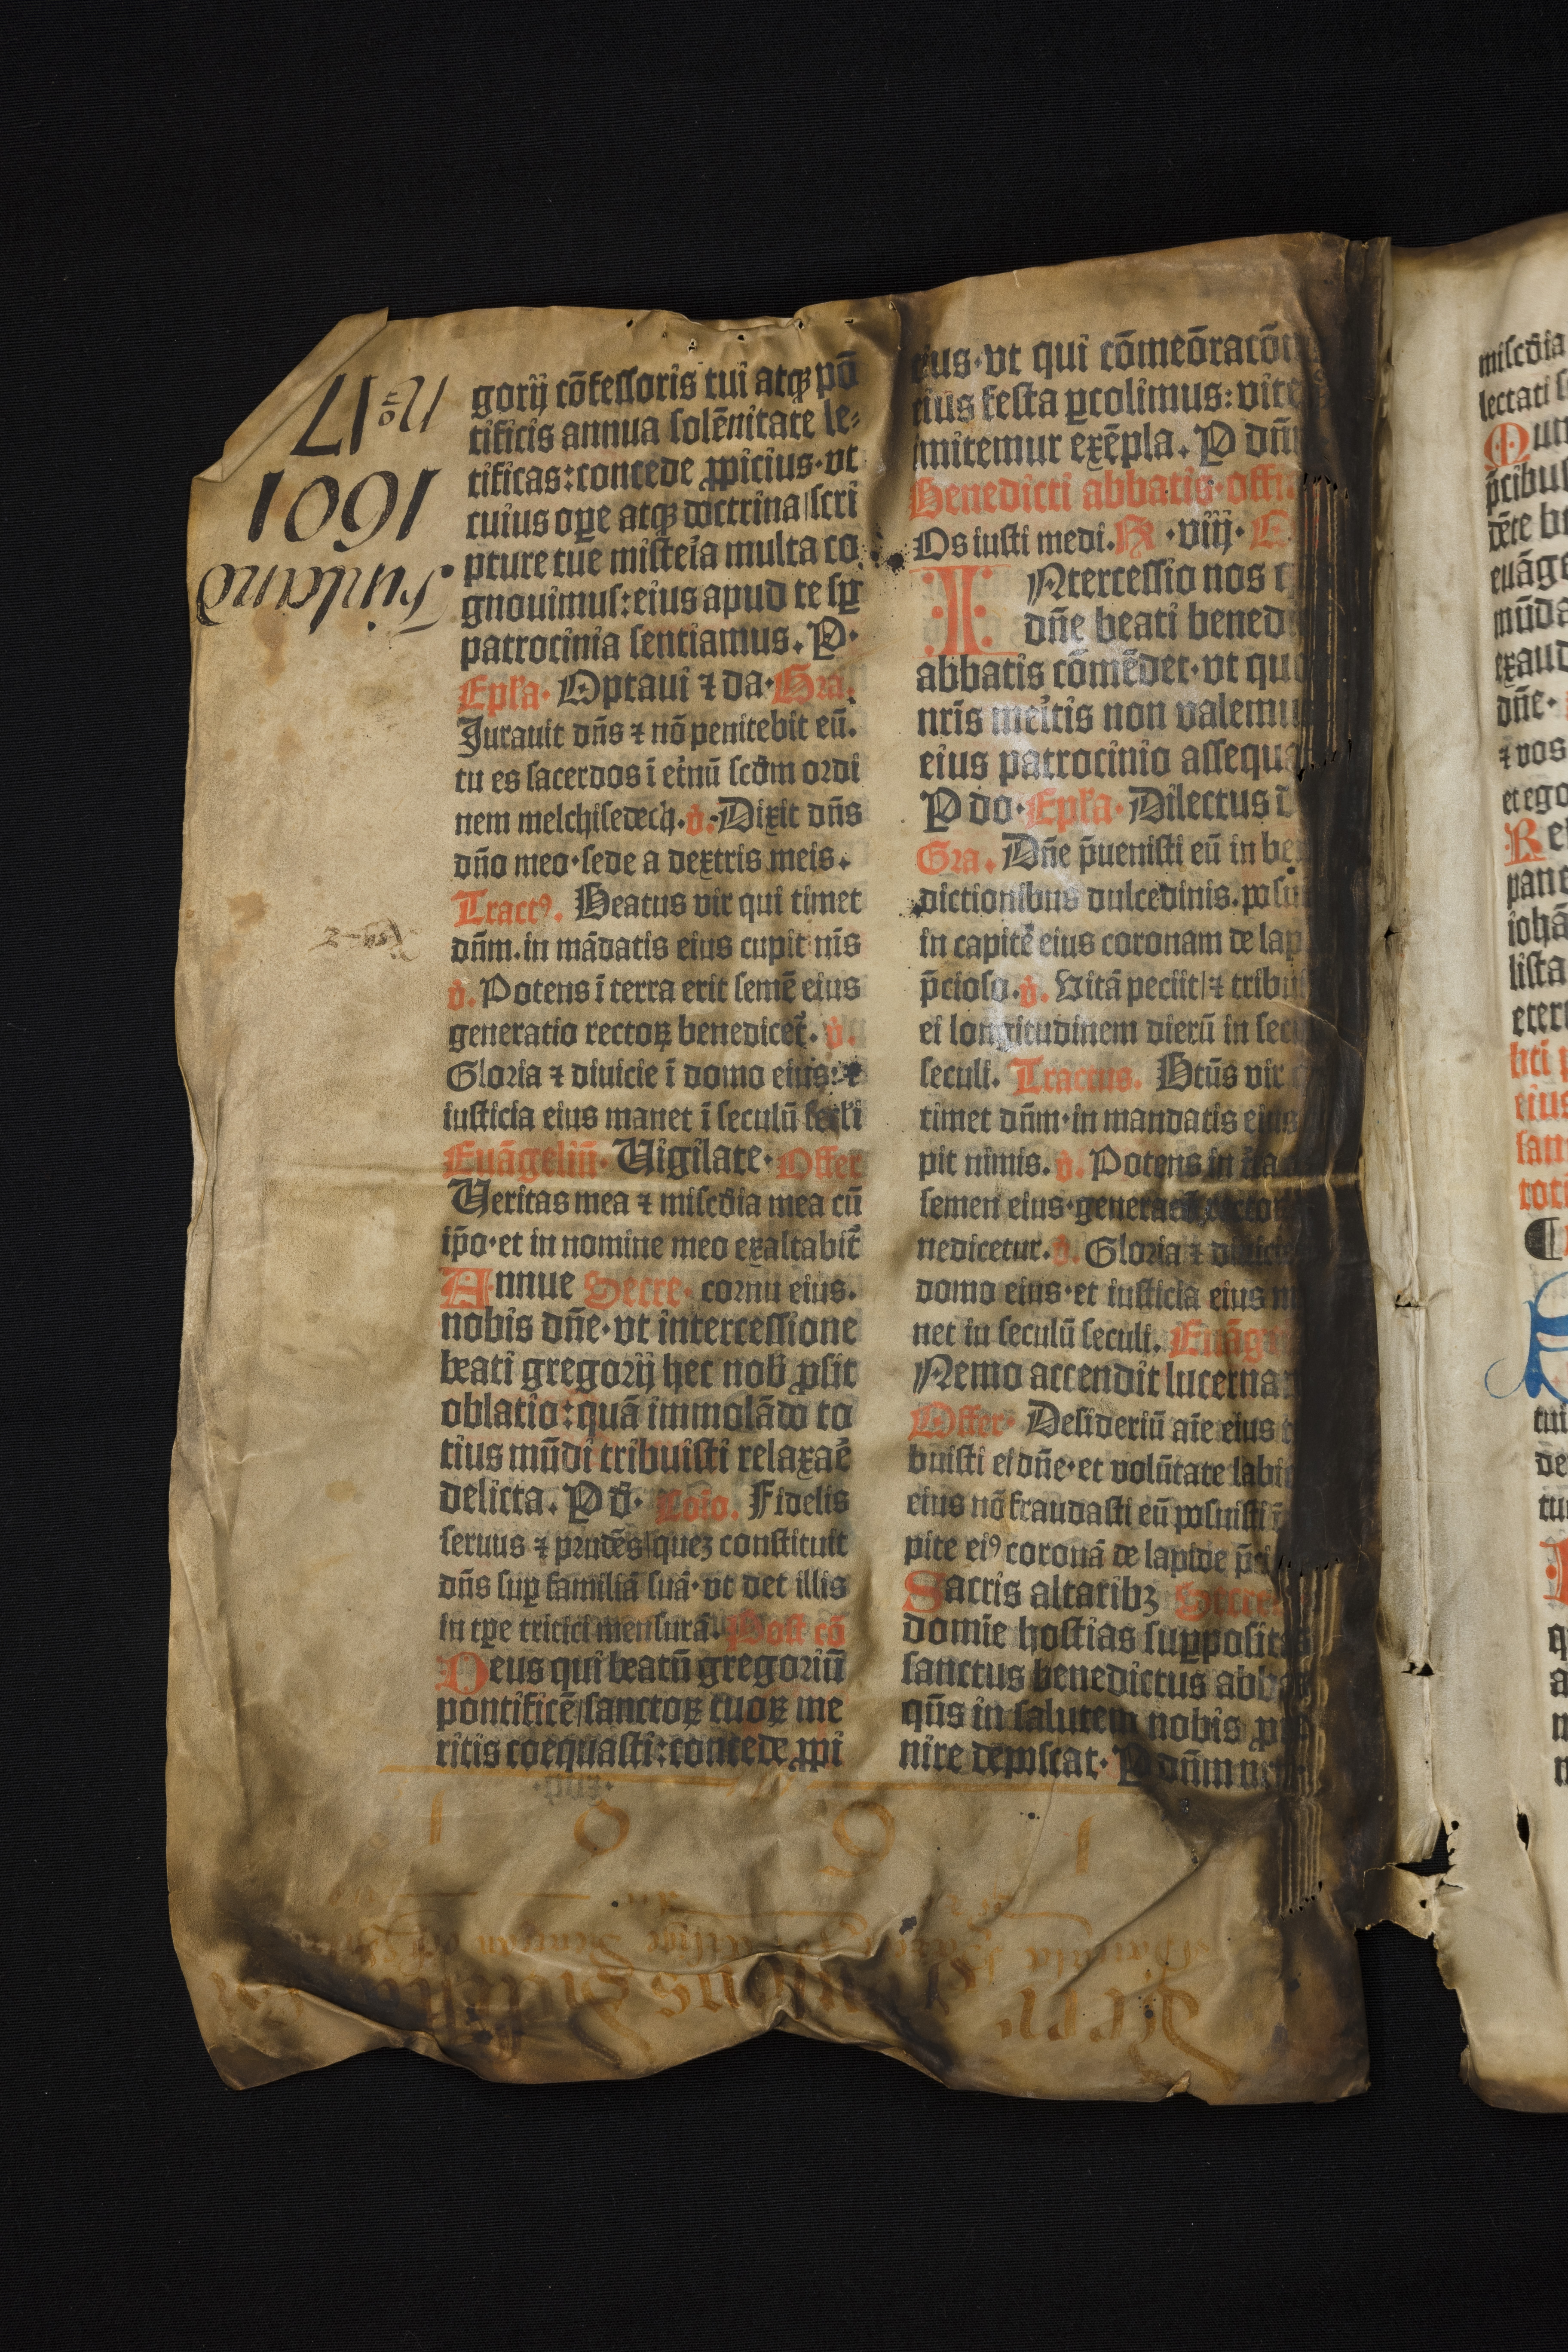 gorij cōfessoris tui atqꝫ pō
tificis annua solēnitate le⸗
tificas: concede ꝓpicius· vt
cuius oꝑe atqꝫ doctrina scri
pture tue misteĩa multa co
gnouimus: eius apud te sꝑ
patrocinia sentiamus. P·
Epl'a· Optaui ⁊ da· Gra.
Jurauit dñs ⁊ nō penitebit eū.
tu es sacerdos ī etnū scd̄m ordi
nem melchisedech. v̄. Dixit dñs
dño meo· sede a dextris meis.
Tractꝰ. Beatus vir qui timet
dñm. in mādatis eius cupit nīs
v̄. Potens ī terra erit semē eius
generatio rectoꝝ benedicet̄. v̄.
Gloria ⁊ diuicie ī domo eius: ⁊
iusticia eius manet ī seculū secl'i
Euāgeliū· Uigilate· Offer
Ueritas mea ⁊ misc̄dia mea cū
ip̄o· et in nomine meo exaltabit̄
Annue Secre· cornu eius.
nobis dñe· vt intercessione
beati gregorij hec nob̄ ꝓsit
oblatio: quā immolādo to
tius mūdi tribuisti relaxaē
delicta. P d̄· Cōio. Fidelis
seruus ⁊ prudēs quez constituit
dñs suꝑ familiā suā· vt det illis
in tꝑe tritici mensurā. Post cō
Deus qui beatū gregoriū
pontificē sanctoꝝ tuoꝝ me
ritis coequasti: concede ꝓpi
eius· vt qui cōmeōracōn
eius festa ꝑcolimus: vite
imitemur exēpla. P dñm
Benedicti abbatis· offm
Os iusti medi. R̄ ·viij· E
INtercessio nos q
dñe beati bened
abbatis cōmēdet· vt quo
nr̄is meītis non valemus
eius patrocinio assequa
P do· Epl'a· Dilectus d
Gra. Dñe p̄uenisti eū in be
dictionibus dulcedinis. posui
in capite eius coronam de lap
p̄cioso. v̄. Vitā peciit ⁊ tribui
ei longitudinem dierū in secu
seculi. Tractus. Btūs vir
timet dñm· in mandatis eius
pit nimis. v̄. Potens in
semen eius·
nedicetur. v̄. Gloria ⁊ diuicie
domo eius· et iusticia eius m
net in seculū seculi. Euāg
Nemo accendit lucerna
Offer· Desideriū aīe eius
buisti ei dñe· et volūtate labi
eius nō fraudasti eū posuisti
pite eiꝰ coronā de lapide p̄
Sacris altaribꝫ Secre
domīe hostias suꝑpositas
sanctus benedictus abba
qūs in salutem nobis ꝓ
nire deposcat· P dñm n
Nō 17
1601
1 6 0 1
miscdia
lectati
Mun
p̄cibus
euāge
mūda
exaud
dñe·
⁊ vos
et ego
Re
pane
iohā
lista
eter
eius
san
toti
tui
de